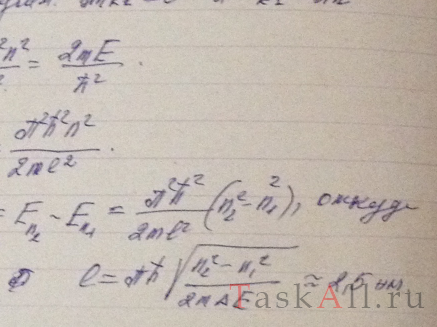 ²n²/² = 2mE/ħ² .
π²ħ²n²/2ml² .
= E_n₂ - E_n₁ = π²ħ²/2ml² (n₂² - n₁²), откуда
l = πħ √(n₂² - n₁²/2mΔE) ≈ 1,5 нм
TaskAll.ru